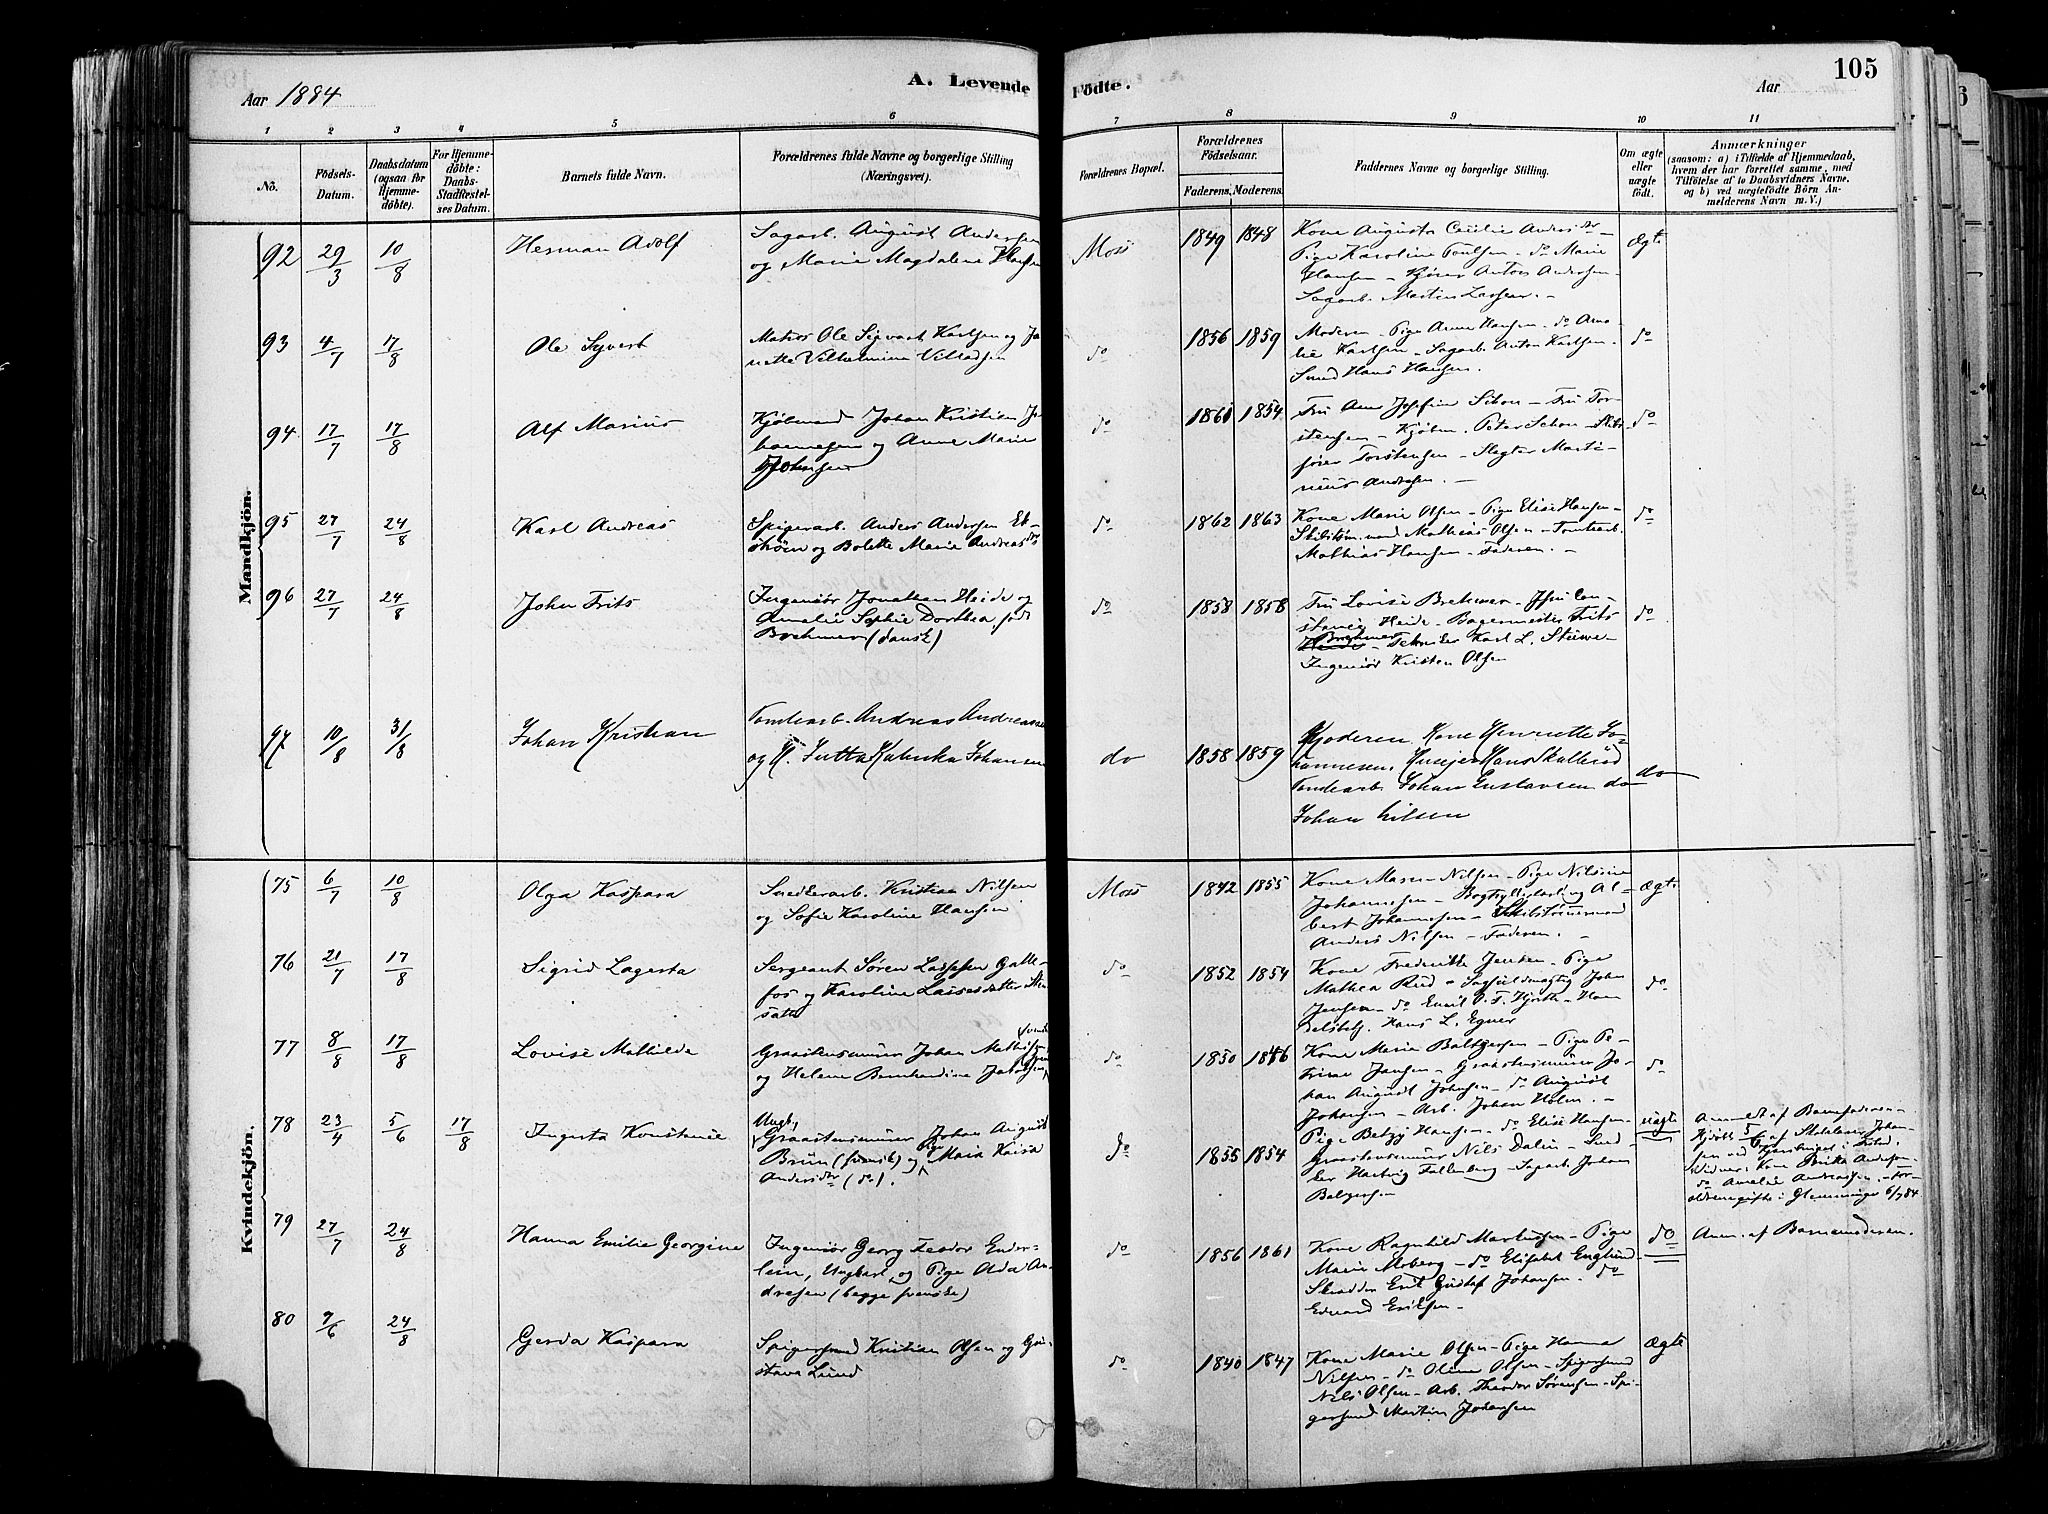 Aar 1884
A. Levende
Födte.
Aar
105
1 2 3 4 5 6 7 8 9 10 11
No.
Födsels-
Datum.
Daabsdatum
(ogsaa for
Hjemme-
döbte).
For Hjemme-
döbte:
Daabs-
Stadfæstel-
ses Datum.
Barnets fulde Navn.
Forældrenes fulde Navne og borgerlige Stilling
(Næringsvei).
Forældrenes Bopæl.
Forældrenes
Födselsaar.
Faderens. Moderens.
Faddernes Navne og borgerlige Stilling.
Om ægte
eller
uægte
födt.
Anmærkninger
(saasom: a) i Tilfælde af Hjemmedaab,
hvem der har forrettet samme, med
Tilföielse af to Daabsvidners Navne.
og b) ved uægtefödte Börn An-
melderens Navn m. V.)
Mandkjön.
92 29/3 10/8 Herman Adolf
Sagarb. August Andersen
og Marie Magdalene Hansen
Moss 1849 1848
Kone Augusta Cecilie Andersdr –
Pige Karoline Poulsen – do Marie
Hansen – Kjører Anton Andersen –
Sagarb. Martin Larsen. –
Ægte
93 4/7 17/8 Ole Syvert
Matros Ole Sigvart Karlsen og Ja-
nette Vilhelmine Villadsen
do 1856 1859
Moderen – Pige Anna Hansen – do Ama-
lie Karlsen – Sagarb. Anton Karlsen –
Smed Hans Hansen.
do
94 17/7 17/8 Alf Marius
Kjøbmand Johan Kristian Jo-
hannesen og Anne Marie
Johnsen
do 1861 1854
Fru Ane Josefine Schou – Fru Tor-
stensen – Kjøbm. Peter Schou – Skibs-
fører Torstensen – Slagter Marti-
nius Andresen. –
do
95 27/7 24/8 Karl Andreas
Spigerarb. Anders Andersen Ek-
strøm og Bolette Marie Andreasdr
do 1862 1863
Kone Marie Olsen – Pige Elise Hansen –
Skibstømmermand Mathias Olsen – Tomtearb.
Mathias Hansen – Faderen. –
do
96 27/7 24/8 John Frits
Ingeniør Jonathan Heide og
Amalie Sophie Dorthea, født
Brehmer (dansk)
do 1858 1858
Fru Lovise Brehmer – Frk Con-
stance Heide – Bagermester Frits
Brehmer – Tekniker Karl L. Stüwe –
Ingeniør Kristen Olsen
do
97 10/8 31/8 Johan Kristian
Tomtearb. Andreas Andreassen
og H. Jutta Kathrika Johansen
do 1858 1859
Moderen. Kone Henriette Jo-
hannesen. Husejer Hans Skallerud
Tomtearb. Johan Gustavsen do
Johan Nilsen
do
Kvindekjön.
75 6/7 10/8 Olga Kaspara
Snedkerarb. Kristian Nilsen
og Sofie Karoline Hansen
Moss 1842 1855
Kone Maren Nilsen – Pige Nilsine
Johannesen – Bogtrykkerlærling Al-
bert Johannesen – Skibstømmermand
Anders Nilsen – Faderen. –
Ægte
76 21/7 17/8 Sigrid Lagerta
Sergeant Søren Lassesen Galle-
fos og Karoline Lassesdatter Sten-
sæth
do 1852 1854
Kone Fredrikke Jensen – Pige
Mathea Rud – Sagfuldmægtig John
Jensen – do Emil O. F. Hjorth – Han-
delsbetj. Hans L. Egner
do
77 8/8 17/8 Lovise Mathilde
Graastensmurer Johan Mathisen
og Helene Bernhardine Jakobsen
do 1850 1856
Kone Maria Baltzersen – Pige Pe-
trine Jansen – Graastensmurer Jo-
han August Johnsen – do August
Johansen – Arb. Johan Holm. –
do
78 23/4 5/6 17/8 Ingusta Konstance
Ungk.
Graastensmurer Johan August
Brün (svensk) og Pige Maria Kaisa
Andersdr (do).
do 1855 1854
Pige Betzy Hansen – do Elise Hansen –
Graastensmurer Nils Dalin – Sned-
ker Hartvig Falkenberg – Sagarb. Johan
Baltzersen
uægte
Anmeldt af Barnefaderen –
79 27/7 24/8 Hanna Emilie Georgine
Ingeniør Georg Feodor Ender-
lein, Ungkarl, og Pige Ada An-
dresen (begge svenske)
do 1856 1861
Kone Ragnhild Martinsen – Pige
Marie Moberg – do Elisabet Englund.
Skrædder Erik Gustaf Johansen. do
Edvard Eriksen –
do
Anm. af Barnemoderen.
80 7/6 24/8 Gerda Kaspara
Spigersmed Kristian Olsen og Gu-
stava Lund
do 1840 1847
Kone Marie Olsen – Pige Hanna
Nilsen – do Oline Olsen – Spigersmed
Nils Olsen – Arb. Theodor Sørensen – Spi-
gersmed Martin Johansen
Ægte